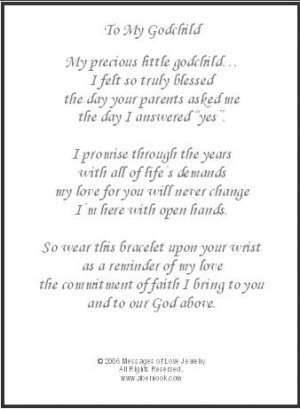 To My Godchild
My precious little godchild. . .
I felt so truly blessed
the day your parents asked me
the day I answered "yes".
I promise through the years
with all of life's demands
my love for you will never change
I'm here with open hands.
So wear this bracelet upon your wrist
as a reminder of my love
the commitment of faith I bring to you
and to our God above.
© 2006 Messages of Love Jewelry
All Rights Reserved.
www.abernook.com